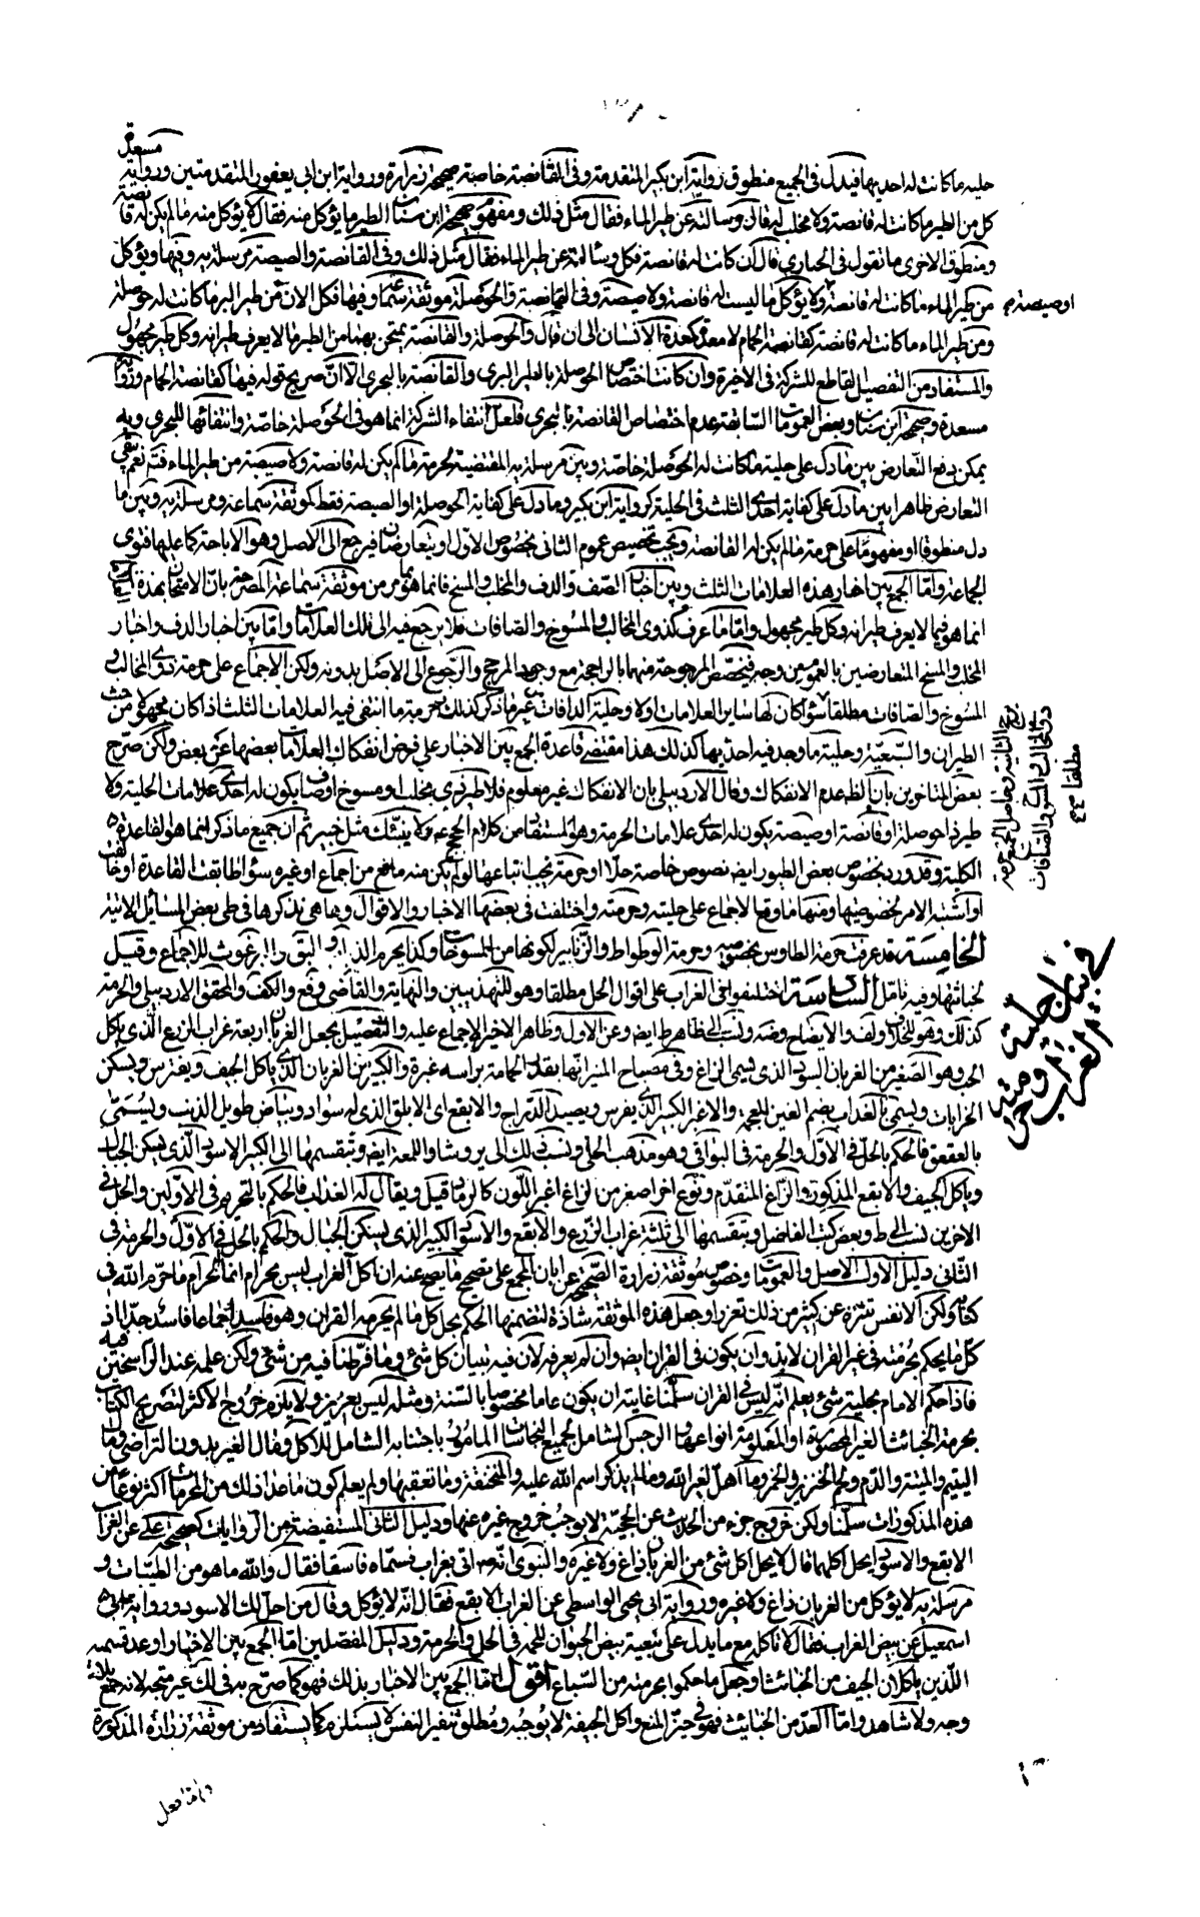 حلية ما كانت له احديها فيدل في الجميع منطوق رواية ابن بكير المتقدمة وفي القانصة خاصة صحيحة زرارة ورواية ابن ابي يعفور المتقدمتين ورواية مسعدة
كل من الطير ما كانت له قانصة ولا مخلب له قال وسالته عن طير الماء فقال مثل ذلك ومفهوم صحيحة ابن سنان الطير ما يؤكل منه فقال لا يؤكل منه ما لم يكن له قانصة
ومنطوق الاخرى ما تقول في الحبارى قال ان كانت له قانصة فكل وسالته عن طير الماء فقال مثل ذلك وفي القانصة والصيصة مرسلة يه وفيها ويؤكل
من طير الماء ما كانت له قانصة او صيصة ولا يؤكل ما ليست له قانصة ولا صيصة وفي القانصة والحوصلة موثقة سماعة وفيها فكل الان من طير البر ما كانت له حوصلة
ومن طير الماء ما كانت له قانصة كقانصة الحمام لا معدة كمعدة الانسان الى ان قال والحوصلة والقانصة يمتحن بهما من الطير ما لا يعرف طيرانه وكل طير مجهول
والمستفاد من التفصيل القاطع للشركة في الاخيرة وان كانت اختصاص الحوصلة بالطير البري والقانصة بالبحري الا ان صريح قوله فيها كقانصة الحمام ورواية
مسعدة وصحيحة ابن سنان وبعض العمومات السابقة عدم اختصاص القانصة بالبحري فلعل انتفاء الشركة انما هو في الحوصلة خاصة وانتفائها للبحري وبه
يمكن دفع التعارض بين ما دل على حلية ما كانت له الحوصلة خاصة وبين مرسلة يه المقتضية لحرمة ما لم يكن له قانصة ولا صيصة من طير الماء فتم نعم يبقى
التعارض ظاهرا بين ما دل على كفاية احدى الثلث في الحلية كرواية ابن بكير وما دل على كفاية الحوصلة او الصيصة فقط كموثقة سماعة ومرسلة يه وبين ما
دل منطوقا او مفهوما على حرمة ما لم يكن له القانصة ويجب تخصيص عموم الثاني بخصوص الاول او يتعارضان فيرجع الى الاصل وهو الاباحة كما عليها فتوى
الجماعة واما الجمع بين اخبار هذه العلامات الثلث وبين اخبار الصف والدف والمخلب والمسخ فانما هو بما مر من موثقة سماعة المصرحة بان الامتحان بهذه
انما هو فيما لا يعرف طيرانه وكل طير مجهول واما ما عرف كذوي المخالب والمسوخ والصافات فلا يرجع فيه الى تلك العلامات واما بين اخبار الدف واخبار
المخلب والمسخ المتعارضين بالعموم من وجه فيخصص المرجوحة منهما بالراجحة مع وجود المرجح والرجوع الى الاصل بدونه ولكن الاجماع على حرمة ذوى المخالب و
المسوخ والصافات مطلقا سواء كان لها ساير العلامات او لا وحلية الدافات غير ما ذكر كذلك وحرمة ما انتفى فيه العلامات الثلث اذا كان مجهولا من حيث
الطيران والسبعية وحلية ما وجد فيه احديها كذلك هذا مقتضى قاعدة الجمع بين الاخبار على فرض انفكاك العلامات بعضها عن بعض ولكن صرح
بعض المتاخرين بان الظ عدم الانفكاك وقال الاردبيلي بان الانفكاك غير معلوم فلا طير ذي مخلب او مسوخ او صاف يكون له احدى علامات الحلية ولا
طير ذا حوصلة او قانصة او صيصة يكون له احدى علامات الحرمة وهو المستفاد من كلام الحجج ع ولا ينبئك مثل خبير ثم ان جميع ما ذكر انما هو القاعدة
الكلية وقد ورد بخصوص بعض الطيور ايض نصوص خاصة حلا او حرمة يجب اتباعها لو لم يكن منه مانع من اجماع او غيره سواء طابقت القاعدة او خالفت
او اشتبه الامر لخصوصيتها ومنها ما وقع الاجماع على حليته وحرمته واختلفت في بعضها الاخبار والاقوال وها هي نذكرها في طي بعض المسائل الاتية
الخامسة قد عرفت حرمة الطاوس بخصوصه وحرمة الوطواط والزنابير لكونها من المسوخات وكذا يحرم الذباب والبق والبرغوث للاجماع وقيل
لخباثتها وفيه تامل السادسة اختلفوا في الغراب على اقوال الحل مطلقا وهو للتهذيبين والنهاية والقاضي وفع والكفت والمحقق الاردبيلي والحرمة
كذلك وهو للخلاف ولف والايضاح وضه ونسب الى ظاهر ط ايض وعن الاول وظاهر الاخير الاجماع عليه والتفصيل بجعل الغربان اربعة غراب الزرع الذي ياكل
الحب وهو الصغير من الغربان السود الذي يسمى الزاغ وفي مصباح المنير انها بقدر الحمامة براسه غبرة والكبير من الغربان الذي ياكل الجيف ويفترس ويسكن
الخرابات ويسمى بالغداف بضم الغين المعجمة والاغبر الكبير الذي يفرس ويصيد الدراج والابقع اي الابلق الذي له سواد وبياض طويل الذنب ويسمى
بالعقعق فالحكم بالحل في الاول والحرمة في البواقي وهو مذهب الحلي ونسب ذلك الى ير وشاد واللمعة ايض وبتقسيمها الى الكبير الاسود الذي يسكن الجبال
وياكل الجيف والابقع المذكور والزاغ المتقدم ونوع اخر اصغر من الزاغ اغبر اللون كالرماد قيل ويقال له الغداف فالحكم بالتحريم في الاولين والحل في
الاخرين نسب الى ط وبعض كتب الفاضل وبتقسيمها الى ثلثة غراب الزرع والابقع والاسود الكبير الذي يسكن الجبال والحكم بالحل في الاول والحرمة في
الثاني دليل الاول الاصل والعمومات وخصوص موثقة زرارة الصحيحة عن ابان المجمع على تصحيح ما يصح عنه ان اكل الغراب ليس بحرام انما الحرام ما حرم الله في
كتابه ولكن الانفس تتنزه عن كثير من ذلك تعززا وجعل هذه الموثقة شاذة لتضمنها الحكم بحل كل ما لم يحرمه القران وهو فاسد اجماعا فاسد جدا اذ
كل ما يحكم بحرمته في غير القران لا بد وان يكون في القران ايض وان لم نعرفه لان فيه تبيان كل شئ وما فرطنا فيه من شئ ولكن علمه عند الراسخين فيه
فاذا حكم الامام بحلية شئ يعلم انه ليس في القران سلمنا غايته ان يكون عاما مخصوصا بالسنة ومثله ليس بعزيز ولا يلزم خروج الاكثر لتصريح الكتاب
بحرمة الخبائث الغير المحصورة او المعلومة انواعها والرجس الشامل لجميع النجاسات المامور باجتنابه الشامل للاكل وقال الغير بدون التراضي ومال
اليتيم والميتة والدم ولحم الخنزير والخمر وما اهل لغير الله وما لم يذكر اسم الله عليه والمنخنقة وما تعقبها ولم يعلم كون ما عدا ذلك من المحرمات اكثر نوعا من
هذه المذكورات سلمنا ولكن خروج جزء من الحديث عن الحجية لا يوجب خروج غيره عنها ودليل الثاني المستفيضة من الروايات كصحيحة علي عن الغراب
الابقع والاسود ايحل اكلهما فقال لا يحل اكل شئ من الغربان زاغ ولا غيره والنبوي انه اتي بغراب فسماه فاسقا فقال والله ما هو من الطيبات و
مرسلة يه لا يؤكل من الغربان زاغ ولا غيره ورواية ابي يحيى الواسطي عن الغراب الابقع فقال انه لا يؤكل وقال من احل لك الاسود ورواية
اسمعيل عن بيض الغراب فقال لا تاكله مع ما يدل على تبعية بيض الحيوان للحمه في الحل والحرمة ودليل المفصلين اما الجمع بين الاخبار او عد قسميه
اللذين ياكلان الجيف من الخبائث او جعل ما حكموا بحرمته من السباع اقول اما الجمع بين الاخبار بذلك فهو كما صرح به في لك غير متجه لانه جمع بلا
وجه ولا شاهد واما العد من الخبائث فهو في حيز المنع واكل الجيفة لا يوجبه ومطلق تنفر النفس لا يستلزمه كما يستفاد من موثقة زرارة المذكورة
او صيصة
ذوى المخالب والمسوخ والصافات
مطلقا
في بيان حلية
الغراب وحرمته